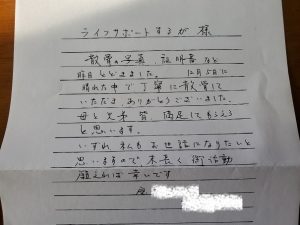 ライフサポートするが 様
散骨の写真、証明書など
昨日とどきました。 12月5日に
晴れた中で丁寧に散骨して
いただき、ありがとうございました。
母と父弟皆、満足してもらえる
と思います。
いずれ私もお世話になりたいと
思いますので、末長く御活動
願えれば幸いです